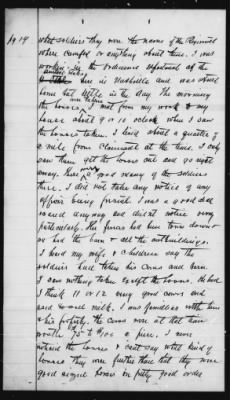 Pg 19
what soldiers they were the name of the Regiment
where camped or anything about them. I was
working in the ordnance department of the
United States
here in Nashville and was about
home but little in the day. The morning
the horses were taken I
from my work to my
house about 9 or 10 o'clock when I saw
the horses taken. I lived about a quarter of
a mile from Claimant at the time. I only
saw them get the horses out and go right
away. There was many of the soldiers
there. I did not take any notice of any
officer being present. I was a good deal
scared any way and did not notice very
particularly. The fences had been torn down
so had the barn & all the outbuildings.
I heard my wife & children say the
soldiers had taken his cows and corn.
I saw nothing taken except the horses. He had
I think 11 or 12 very good cows and
sold milk. I was familiar with them
& his potatoes. The cows were at that time
worth 75 to
I never
noticed the horses & cant say what kind of
horses they were further than that they were
good sized horses in pretty good order